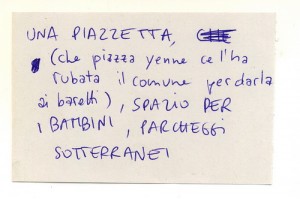 UNA PIAZZETTA,
(che piazza yenne ce l'ha
rubata il comune per darla
ai baretti), SPAZIO PER
I BAMBINI, PARCHEGGI
SOTTERRANEI